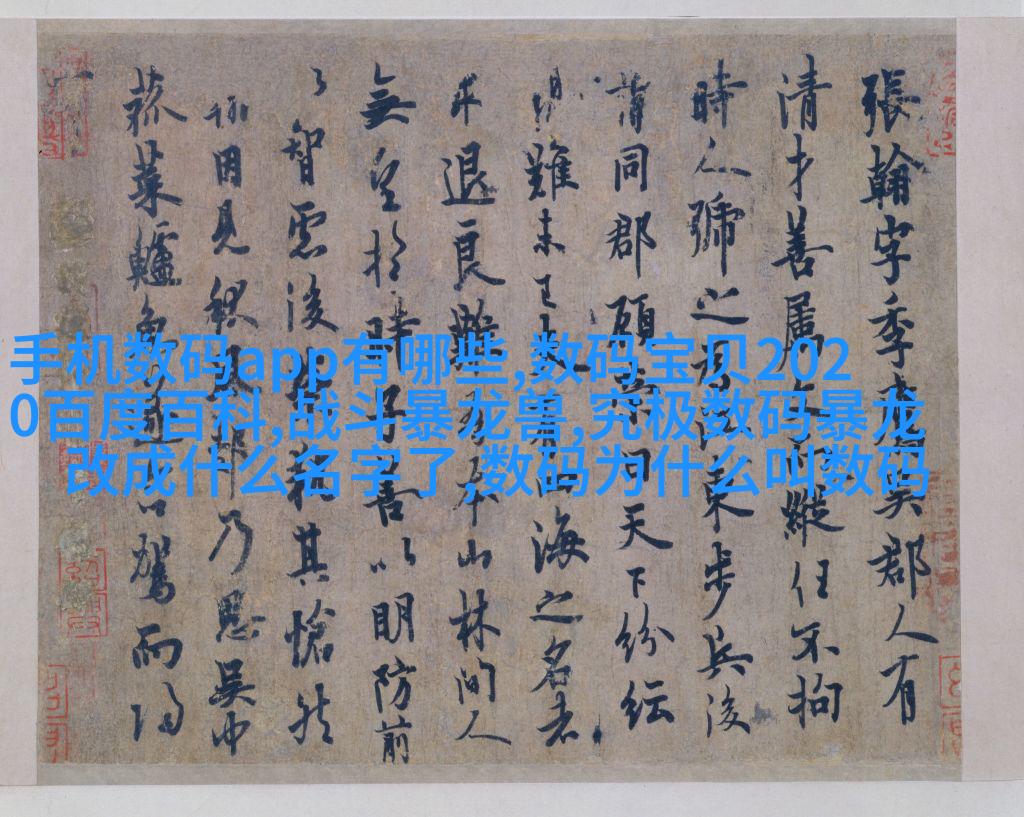 手机数码app有哪些,数码宝贝202
0百度百科,战斗暴龙兽,究极数码暴龙
改成什么名字了,数码为什么叫数码
張翰字季吳郡人有
清才善屬文縱任不拘
時人號之為江東步兵後
同郡顧榮曰天下紛紜
難未已夫有四海之名者
求退良難吾本山林間人
無望於時子善以明防前
以智慮後榮執其愴然
翰因見秋風乃思吳中
菰菜鱸魚遂命駕而歸